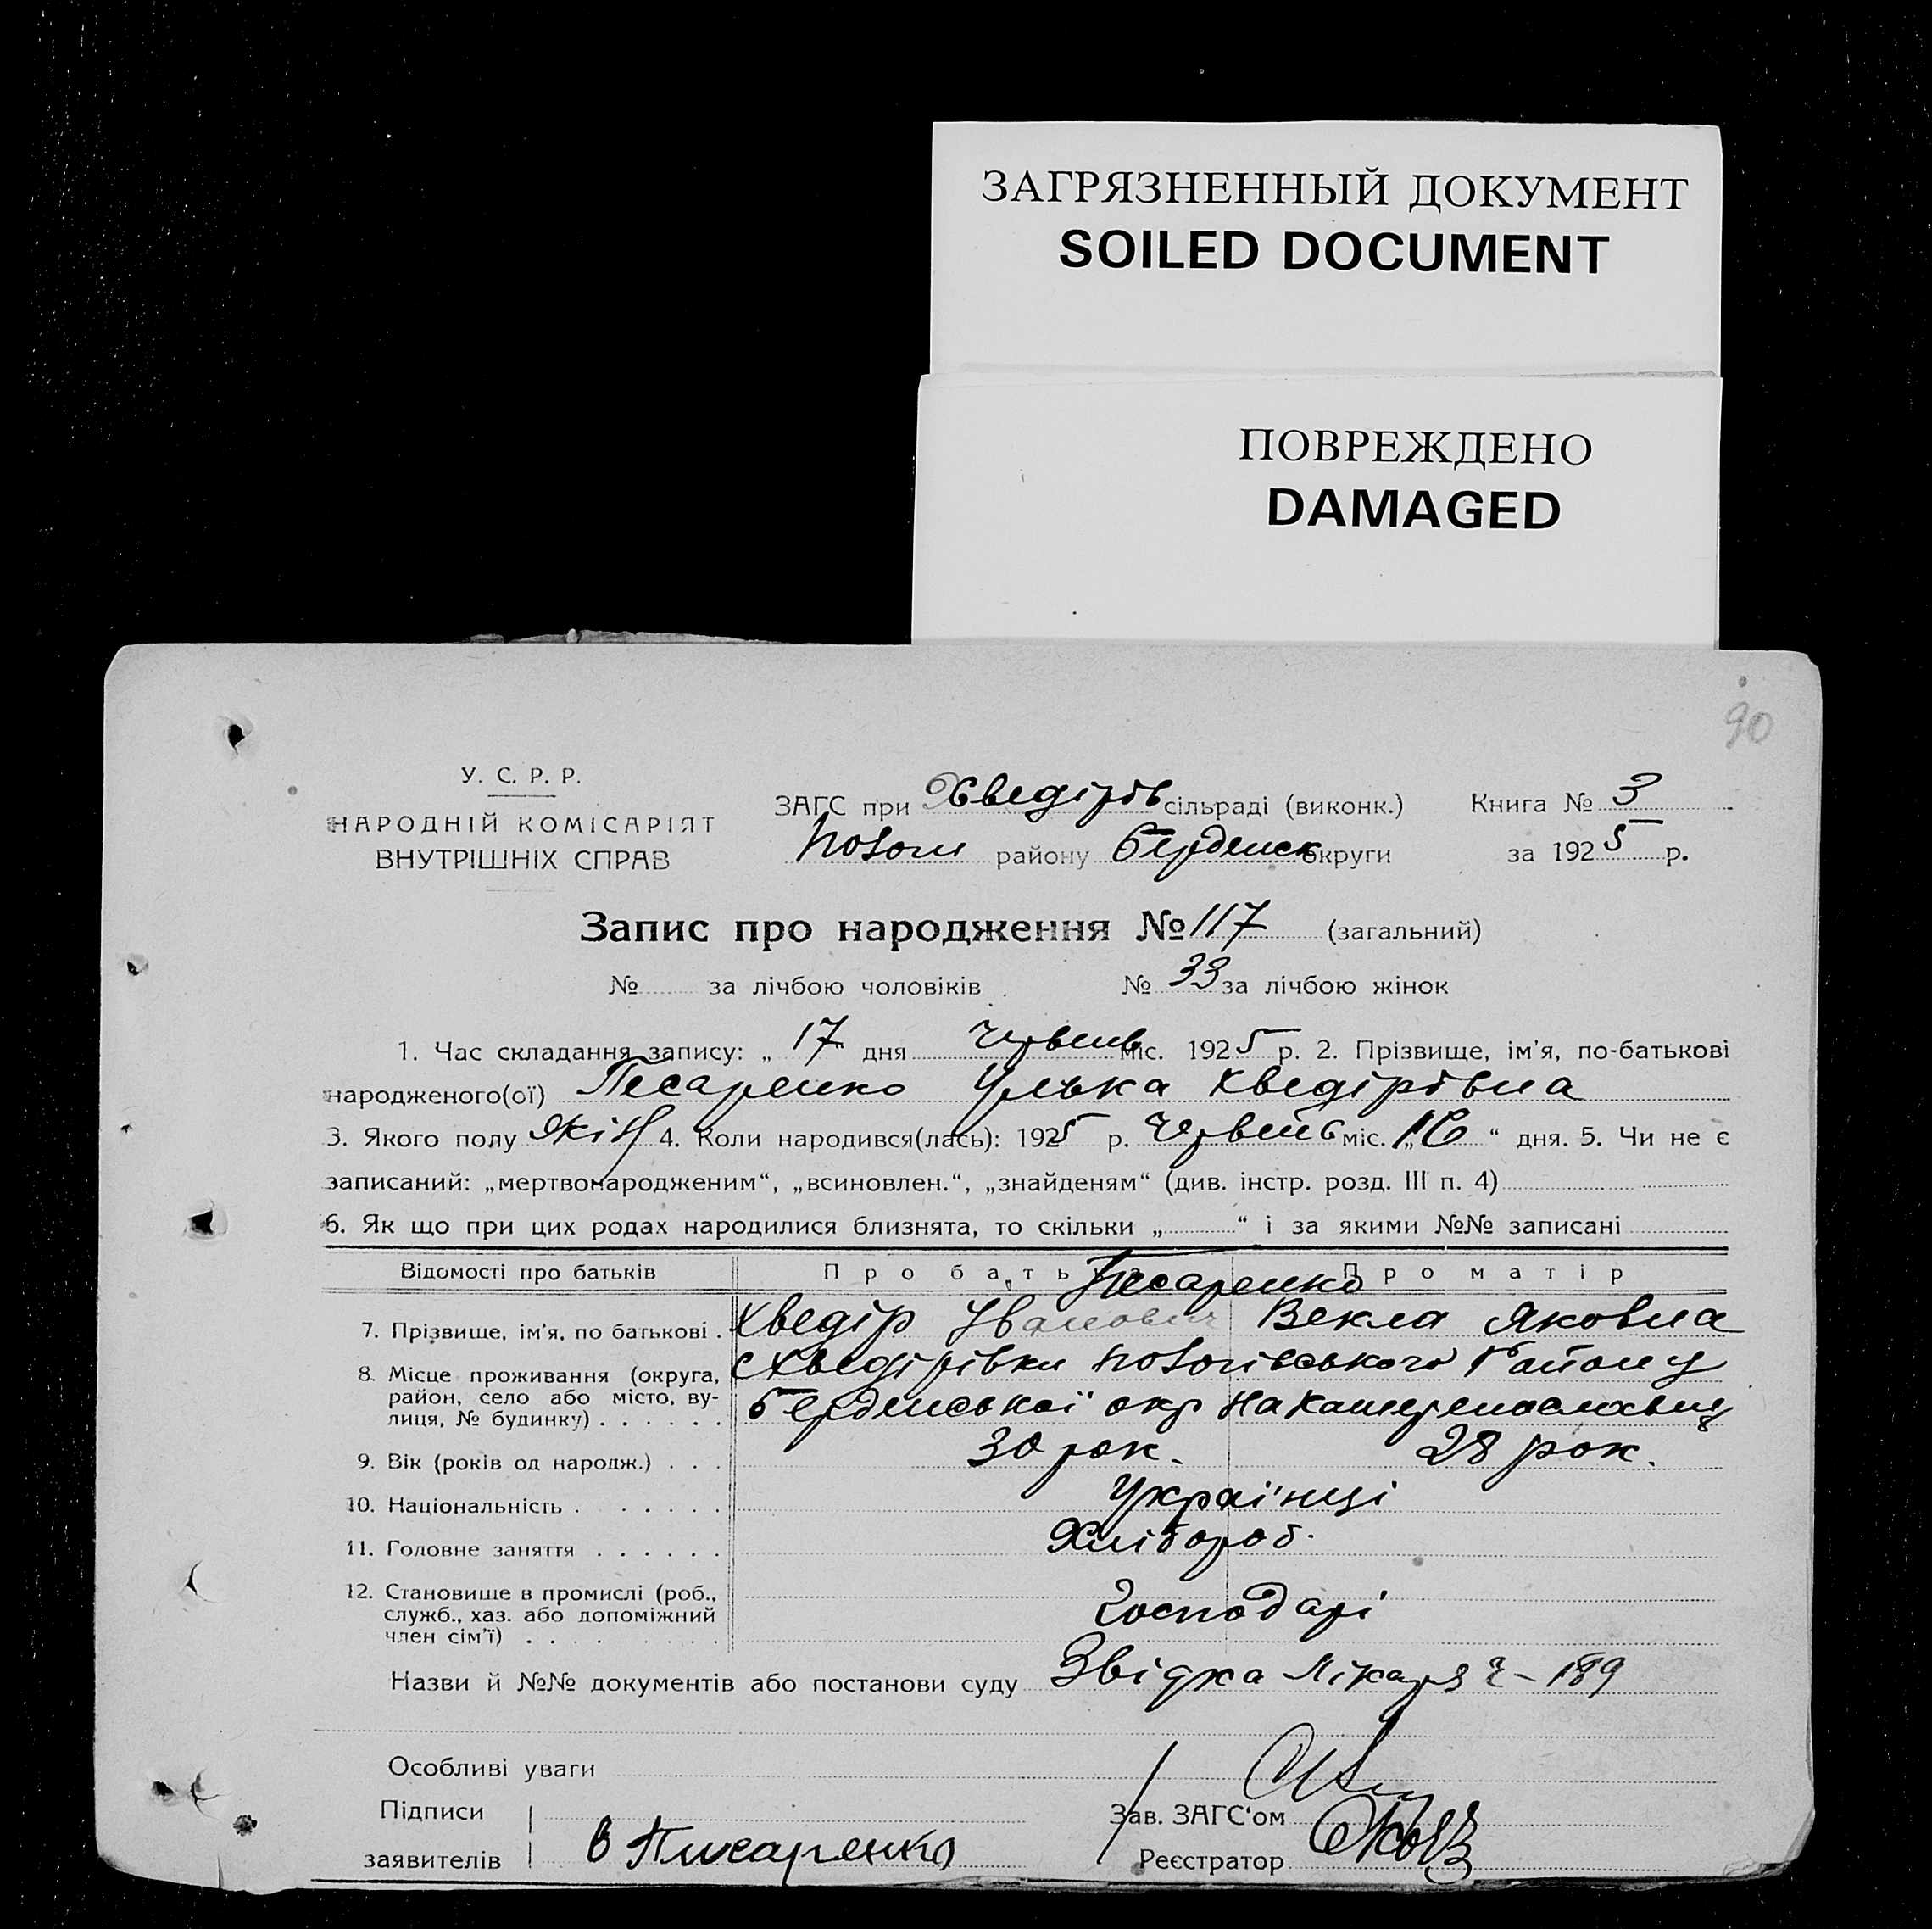 ЗАГРЯЗНЕННЫЙ ДОКУМЕНТ
SOILED DOCUMENT
ПОВРЕЖДЕНО
DAMAGED
90
У. С. Р. Р.
НАРОДНІЙ КОМІСАРІЯТ
ВНУТРІШНІХ СПРАВ
ЗАГС при Хведірів сільраді (виконк.)
району Берденск округи
Книга № 3
за 1925 р.
Запис про народження № 117 (загальний)
№ за лічбою чоловіків № 33 за лічбою жінок
1. Час складання запису: „ 17 " дня червень міс. 1925 р. 2. Прізвище, ім'я, по-батькові
народженого(ої) Песаренко Улька Хведірівна
3. Якого полу жін 4. Коли народився(лась): 1925 р. Червень міс. „16 “ дня. 5. Чи не є
записаний: „мертвонародженим“, „всиновлен.“, „знайденям“ (див. інстр. розд. III п. 4)
6. Як що при цих родах народилися близнята, то скільки „ “ і за якими №№ записані
Відомості про батьків Про батька Про матір
Песаренко
7. Прізвище, ім'я, по батькові . Хведір Іванович Векла Яковна
8. Місце проживання (округа, район, село або місто, вулиця, № будинку) . . . . . .
с Хведірівки Району
Берденської окр на
9. Вік (років од народж.) . . . 30 рок. 28 рок.
10. Національність . . . . . . Українці
11. Головне заняття . . . . . . Хлібороб.
12. Становище в промислі (роб.,
служб., хаз. або допоміжний
член сім'ї) . . . . . . . . Господарі
Назви й №№ документів або постанови суду Звідка Лікаря ч – 189
Особливі уваги
Підписи
заявителів
В Писаренко
Зав. ЗАГС'ом
Реєстратор